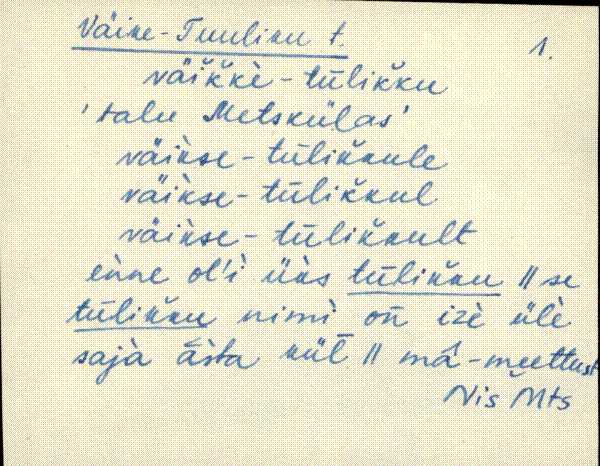 Väike-Tuuliku t.
1.
väikkè-tūlikku
'talu Metskülas'
väikse-tūlikkule
väikse-tūlikkul
väikse-tūlikkult
enne ol'i üks tūlikku || se
tūlikku nimi on izè ülè
sajà āsta kül̄ || mā-meettust
Nis Mts